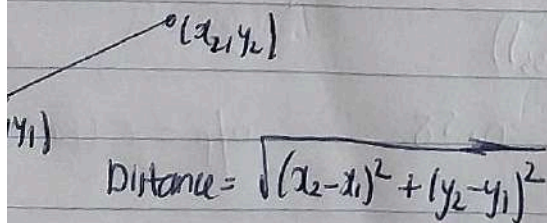 (x₂, y₂)
, y₁)
Distance = √(x₂-x₁)² + (y₂-y₁)²